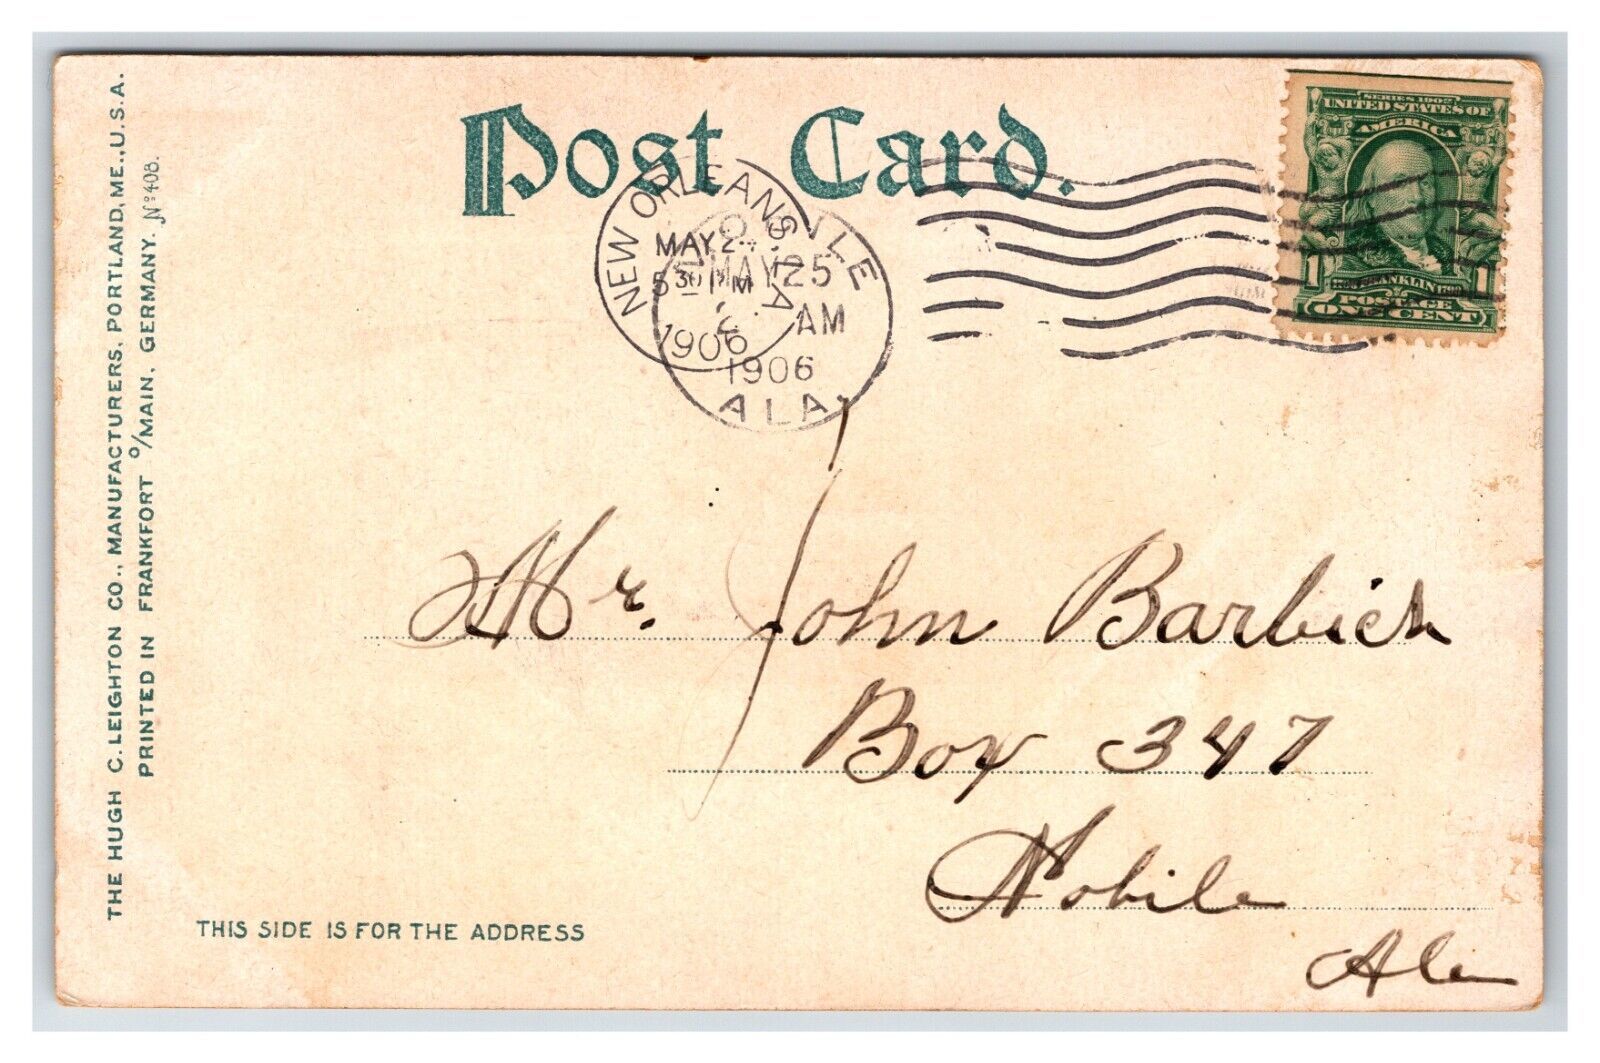 THE HUGH C. LEIGHTON CO., MANUFACTURERS, PORTLAND, ME., U.S.A.
PRINTED IN FRANKFORT o/MAIN, GERMANY. No 408.
Post Card.
SERIES 1902
UNITED STATES OF
AMERICA
1 FRANKLIN 1
POSTAGE
ONE CENT
NEW ORLEANS, LA.
MAY 24
5 30 PM
1906
MAY 25
AM
1906
ALA
Mr. John Barbich
Box 347
Mobile
Ala
THIS SIDE IS FOR THE ADDRESS